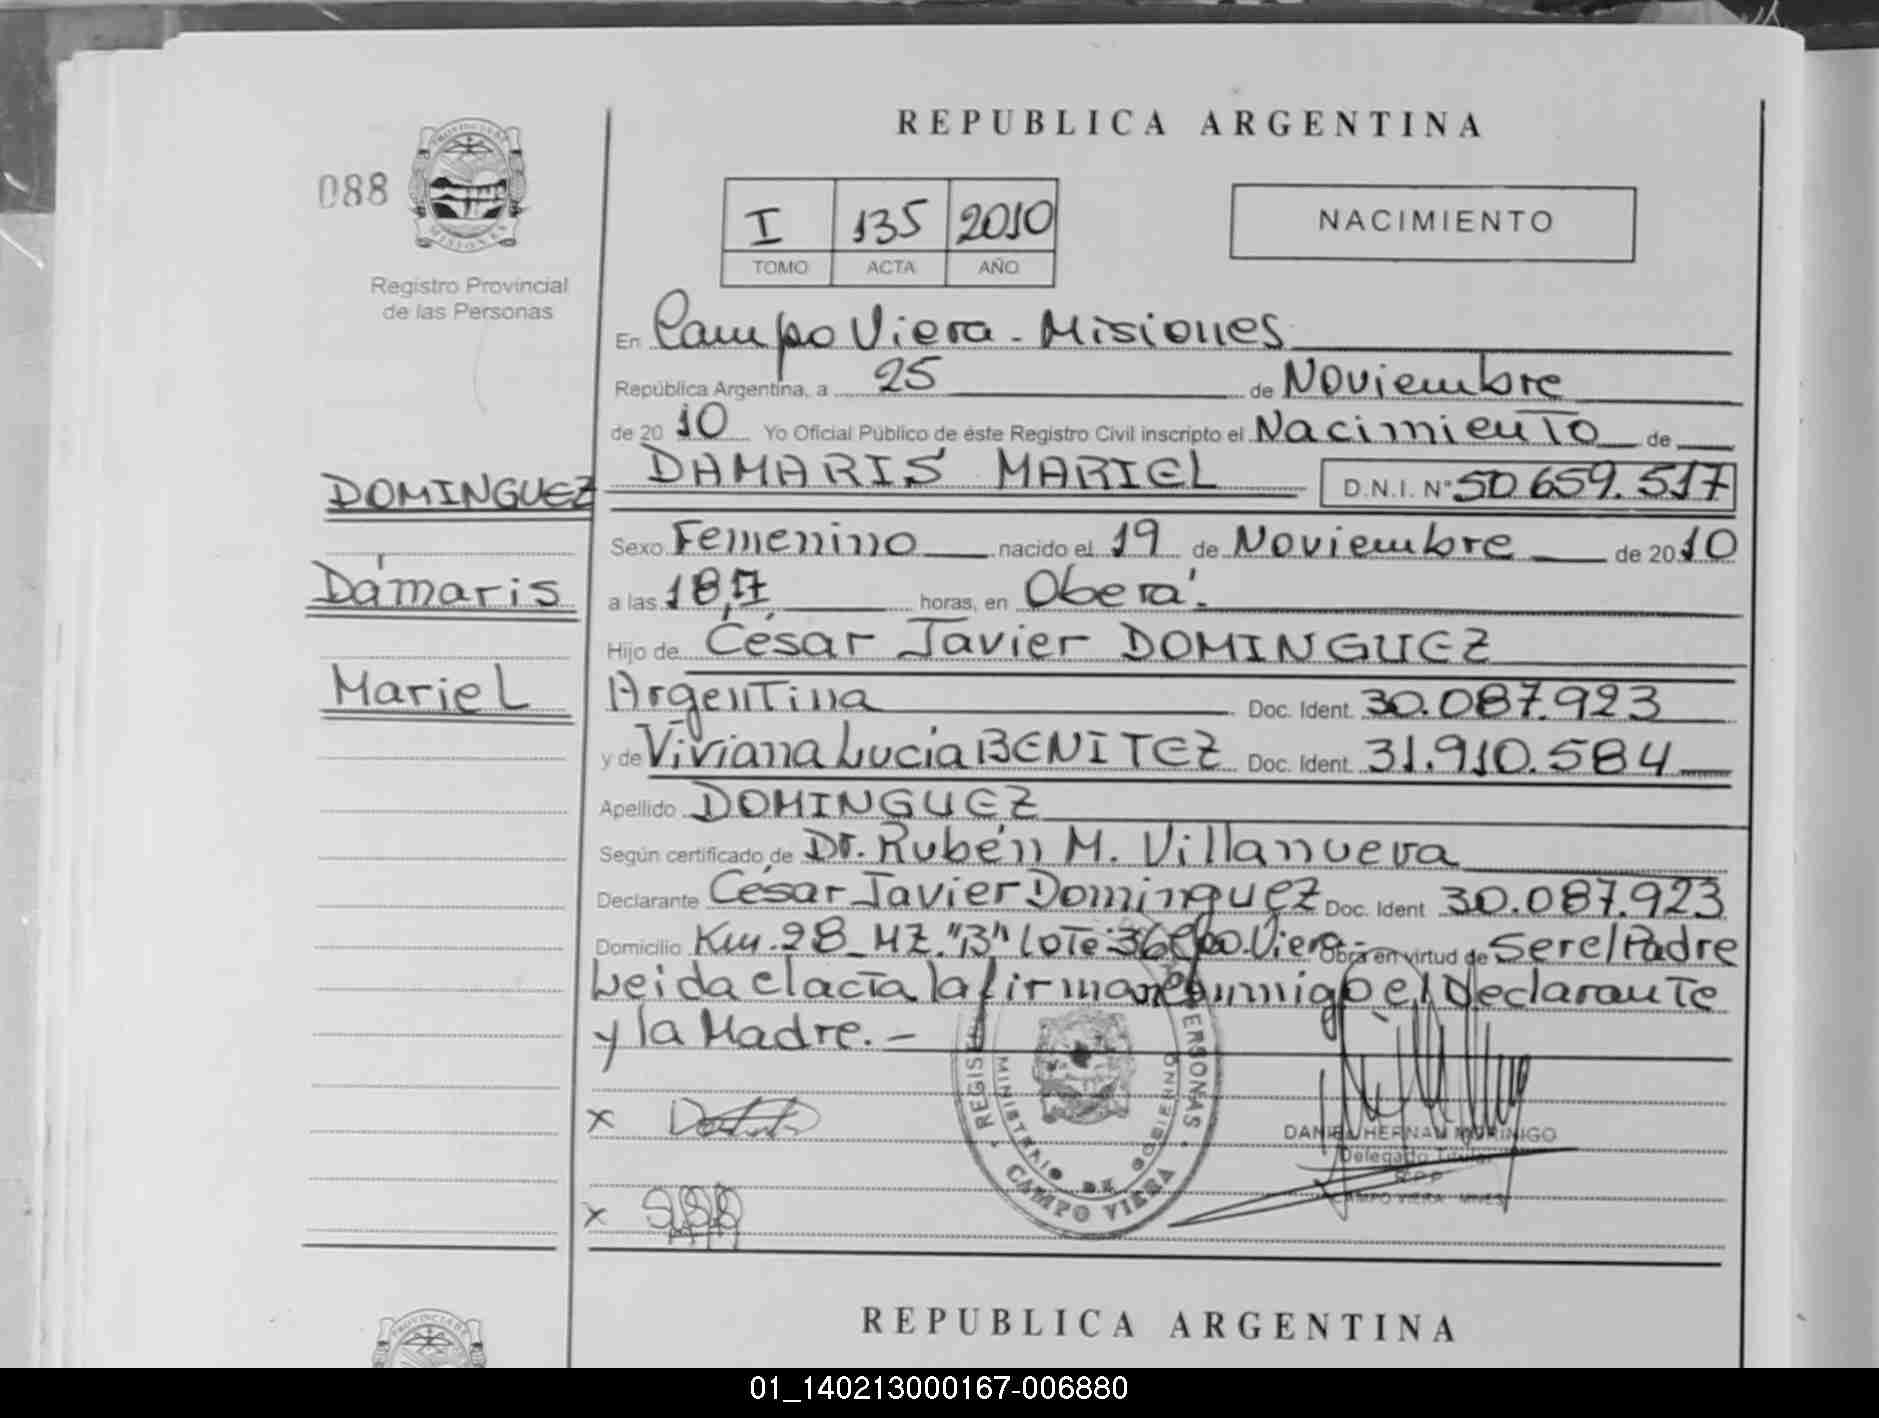 REPUBLICA ARGENTINA
088
PROVINCIA DE
MISIONES
Registro Provincial
de las Personas
I 135 2010
TOMO ACTA AÑO
NACIMIENTO
En Campo Viera - Misiones
República Argentina, a 25 de Noviembre
de 20 10 Yo Oficial Público de éste Registro Civil inscripto el Nacimiento de
DAMARIS MARIEL D.N.I. N° 50.659.517
DOMINGUEZ
Dámaris
Mariel
Sexo Femenino nacido el 19 de Noviembre de 20 10
a las 18,17 horas, en Oberá.
Hijo de César Javier DOMINGUEZ
Argentina Doc. Ident. 30.087.923
y de Viviana Lucía BENITEZ Doc. Ident. 31.910.584
Apellido DOMINGUEZ
Según certificado de Dr. Rubén M. Villanueva
Declarante César Javier Dominguez Doc. Ident 30.087.923
Domicilio Km. 28 - MZ. "B" Lote: 36 Cpo. Viera - Obra en virtud de Ser el Padre
Leida el acta la firman conmigo el Declarante
y la Madre. -
X
X
PERSONAS
MINISTERIO DE GOBIERNO
CAMPO VIERA
DANIEL HERNAN MORINIGO
Delegado Titular
R.P.P.
CAMPO VIERA - MNES
REPUBLICA ARGENTINA
PROVINCIA DE
01_140213000167-006880